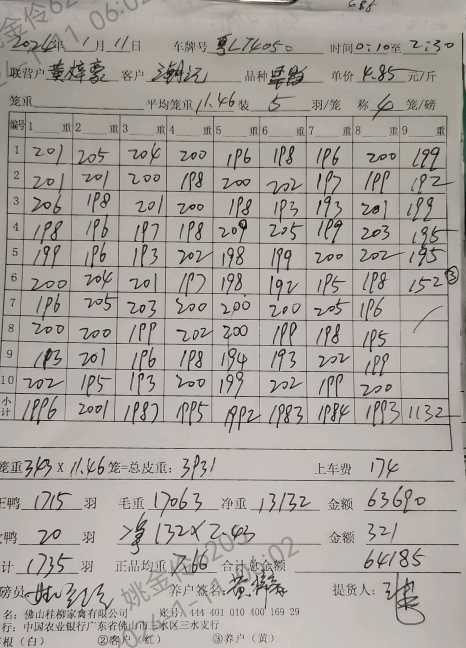 2024年 1月 11日 车牌号 粤LT4050 时间 0:10至 2:30
联营户 黄梓豪 客户 品种 单价 4.85 元/斤
笼重 平均笼重 11.46 装 5 羽/笼 称 4 笼/磅
编号 1 重 2 重 3 重 4 重 5 重 6 重 7 重 8 重 9 重
1 201 205 204 200 196 198 196 200 199
2 201 201 200 198 200 202 197 199 192
3 206 198 201 200 198 193 193 201 199
4 198 196 197 198 209 205 199 203 195
5 199 196 193 202 198 199 200 202 195
6 200 204 201 197 198 192 195 198 152 ③
7 196 205 203 200 200 200 205 196
8 200 200 199 202 200 199 198 195
9 193 201 196 198 194 193 202 199
10 202 195 193 200 199 202 199 200
小计 1996 2001 1987 1995 1992 1983 1984 1993 1132
笼重 343 X 11.46 笼=总皮重: 3931 上车费 174
正鸭 1715 羽 毛重 17063 净重 13132 金额 63690
鸭 20 羽 净 132×2.43 金额 321
计 1735 羽 正品均重 7.66 合计总金额 64185
磅员 养户签名: 提货人:
名: 佛山桂柳家禽有限公司 账号: 444 401 010 400 169 29
行: 中国农业银行广东省佛山市三水区三水支行
根(白) ②客户(红) ③养户(黄)